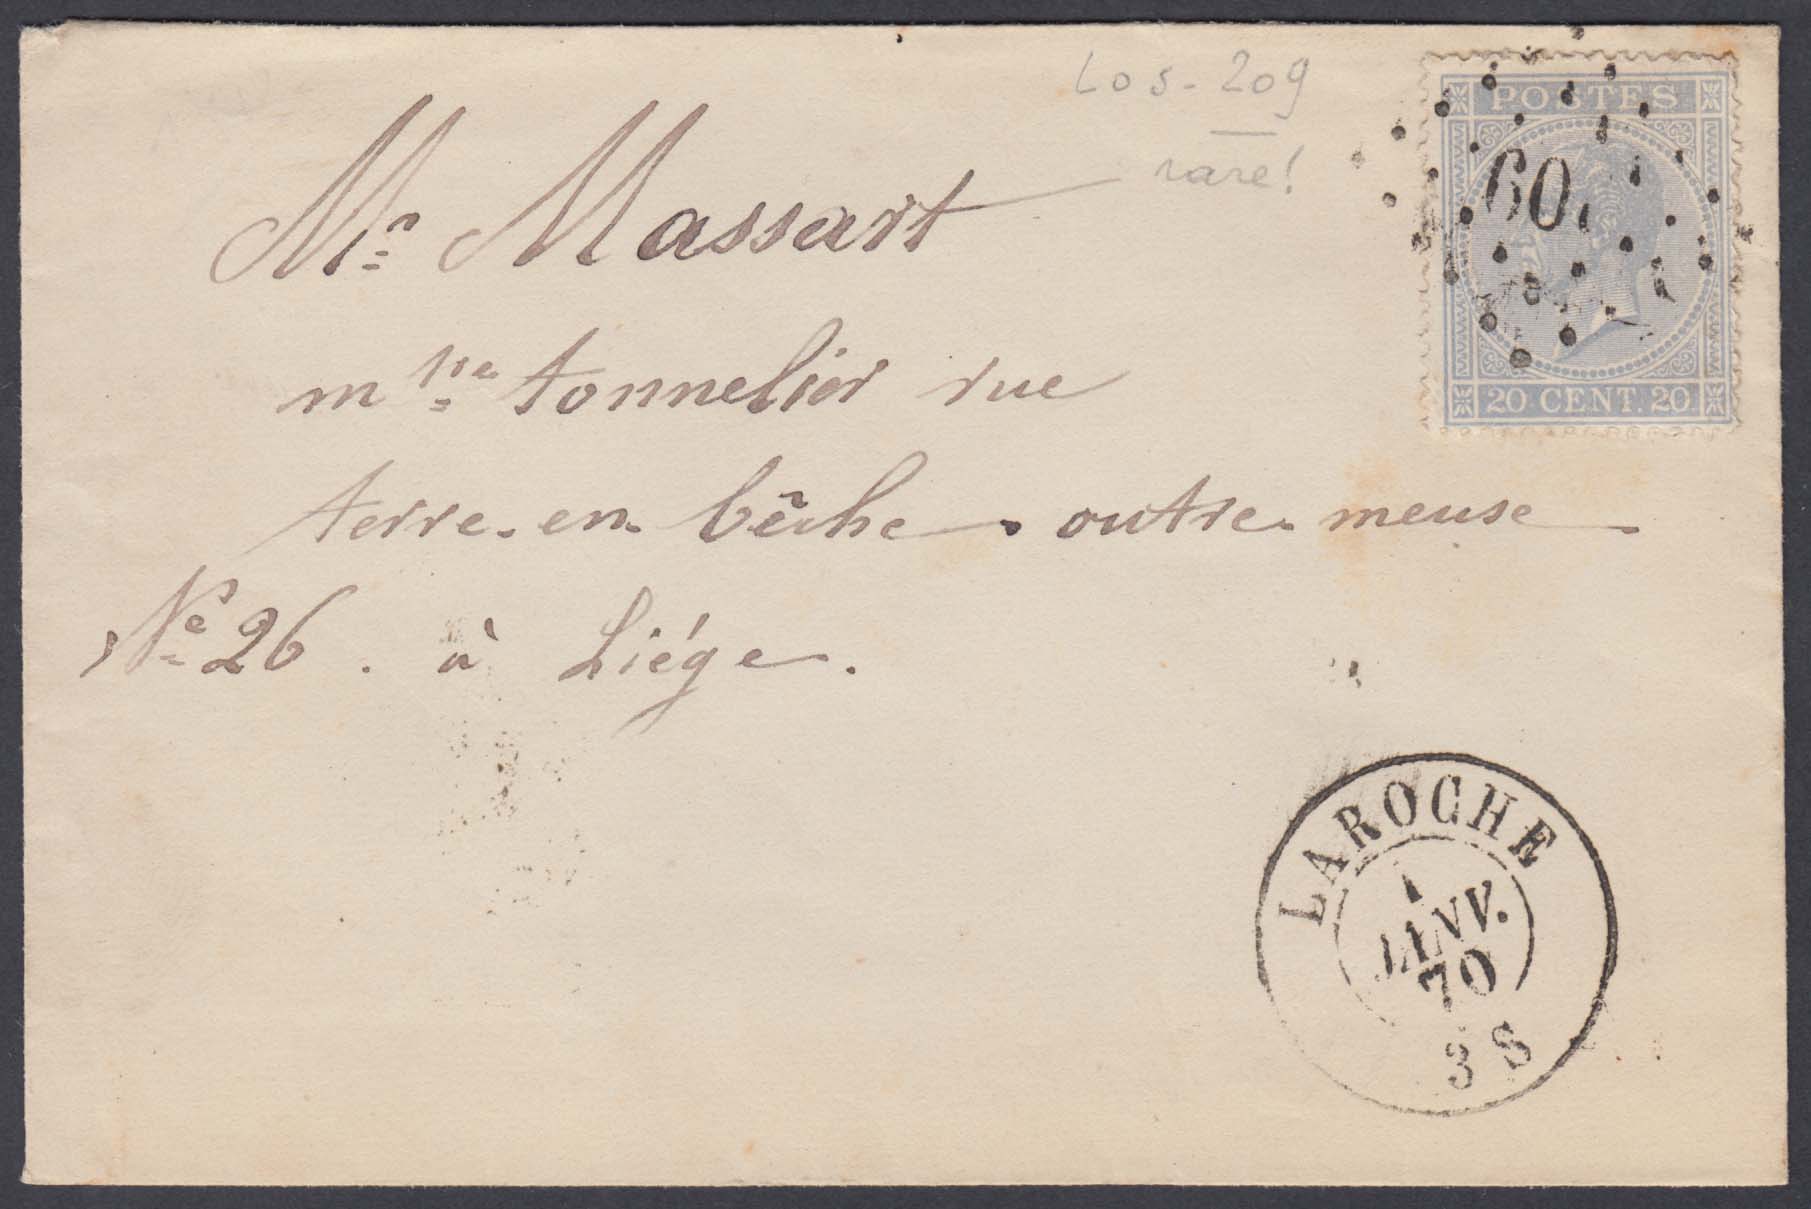 Los - 209
rare!
POSTES
60
20 CENT. 20
Mr. Massart
m tre tonnelier rue
terre-en-bêche - outre-meuse
No. 26. à Liége.
LAROCHE
1
JANV.
70
3 S